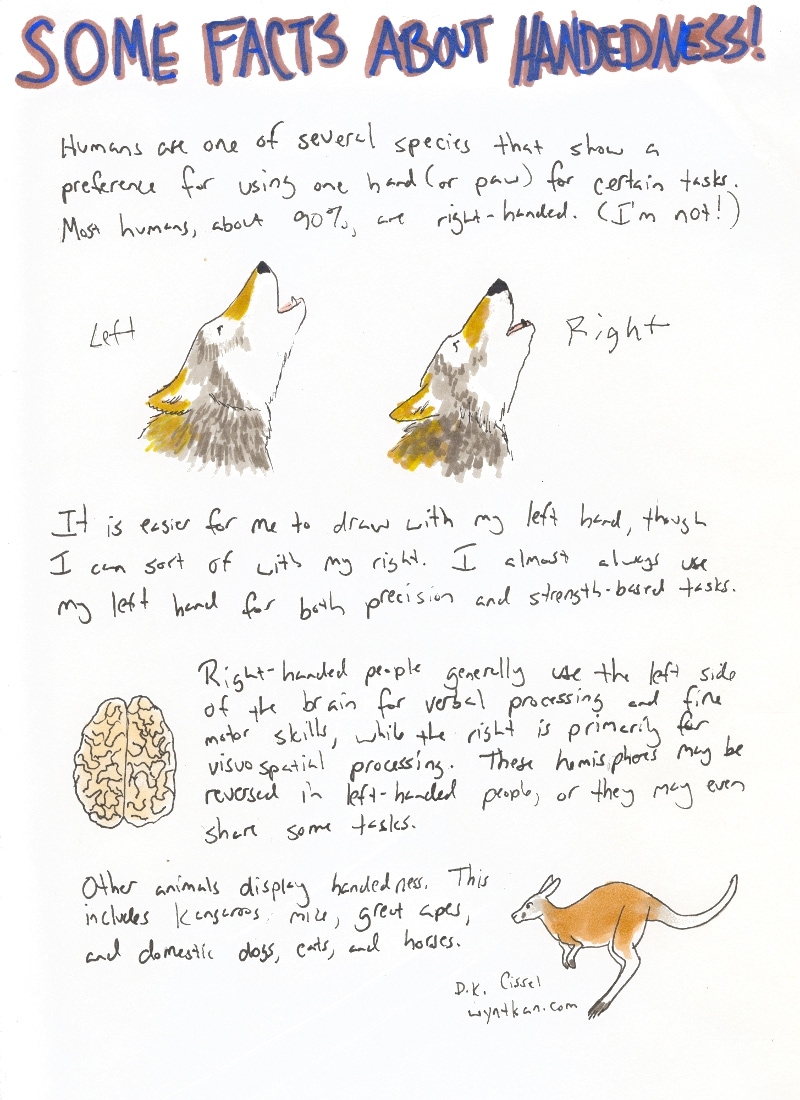 SOME FACTS ABOUT HANDEDNESS!
Humans are one of several species that show a
preference for using one hand (or paw) for certain tasks.
Most humans, about 90%, are right-handed. (I'm not!)
Left
Right
It is easier for me to draw with my left hand, though
I can sort of with my right. I almost always use
my left hand for both precision and strength-based tasks.
Right-handed people generally use the left side
of the brain for verbal processing and fine
motor skills, while the right is primarily for
visuospatial processing. These hemispheres may be
reversed in left-handed people, or they may even
share some tasks.
Other animals display handedness. This
includes kangaroos, mice, great apes,
and domestic dogs, cats, and horses.
D.K. Cissel
wyntkan.com